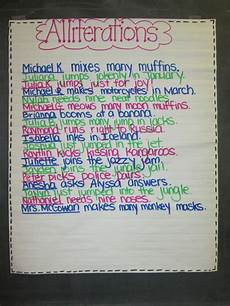 Alliterations
Michael K. mixes many muffins.
Juliana jumps joyfully in January.
Julia K. jumps just for joy!
Michael R. makes motorcycles in March.
Naiah needs nine near noodles.
Michael E. meows many moon muffins.
Brianna booms at a banana.
Julia B. jumps many jump in jacks.
Raymond runs right to Russia.
Isabella inks in Iceland.
jumped in the jet.
Kaytlin kicks kissing kangaroos.
Juliette joins the jazzy jam.
Peter picks police
Anesha asks Alyssa answers.
just jumped into the jungle.
Nathaniel needs nine noses.
Mrs. McGowan makes many monkey masks.